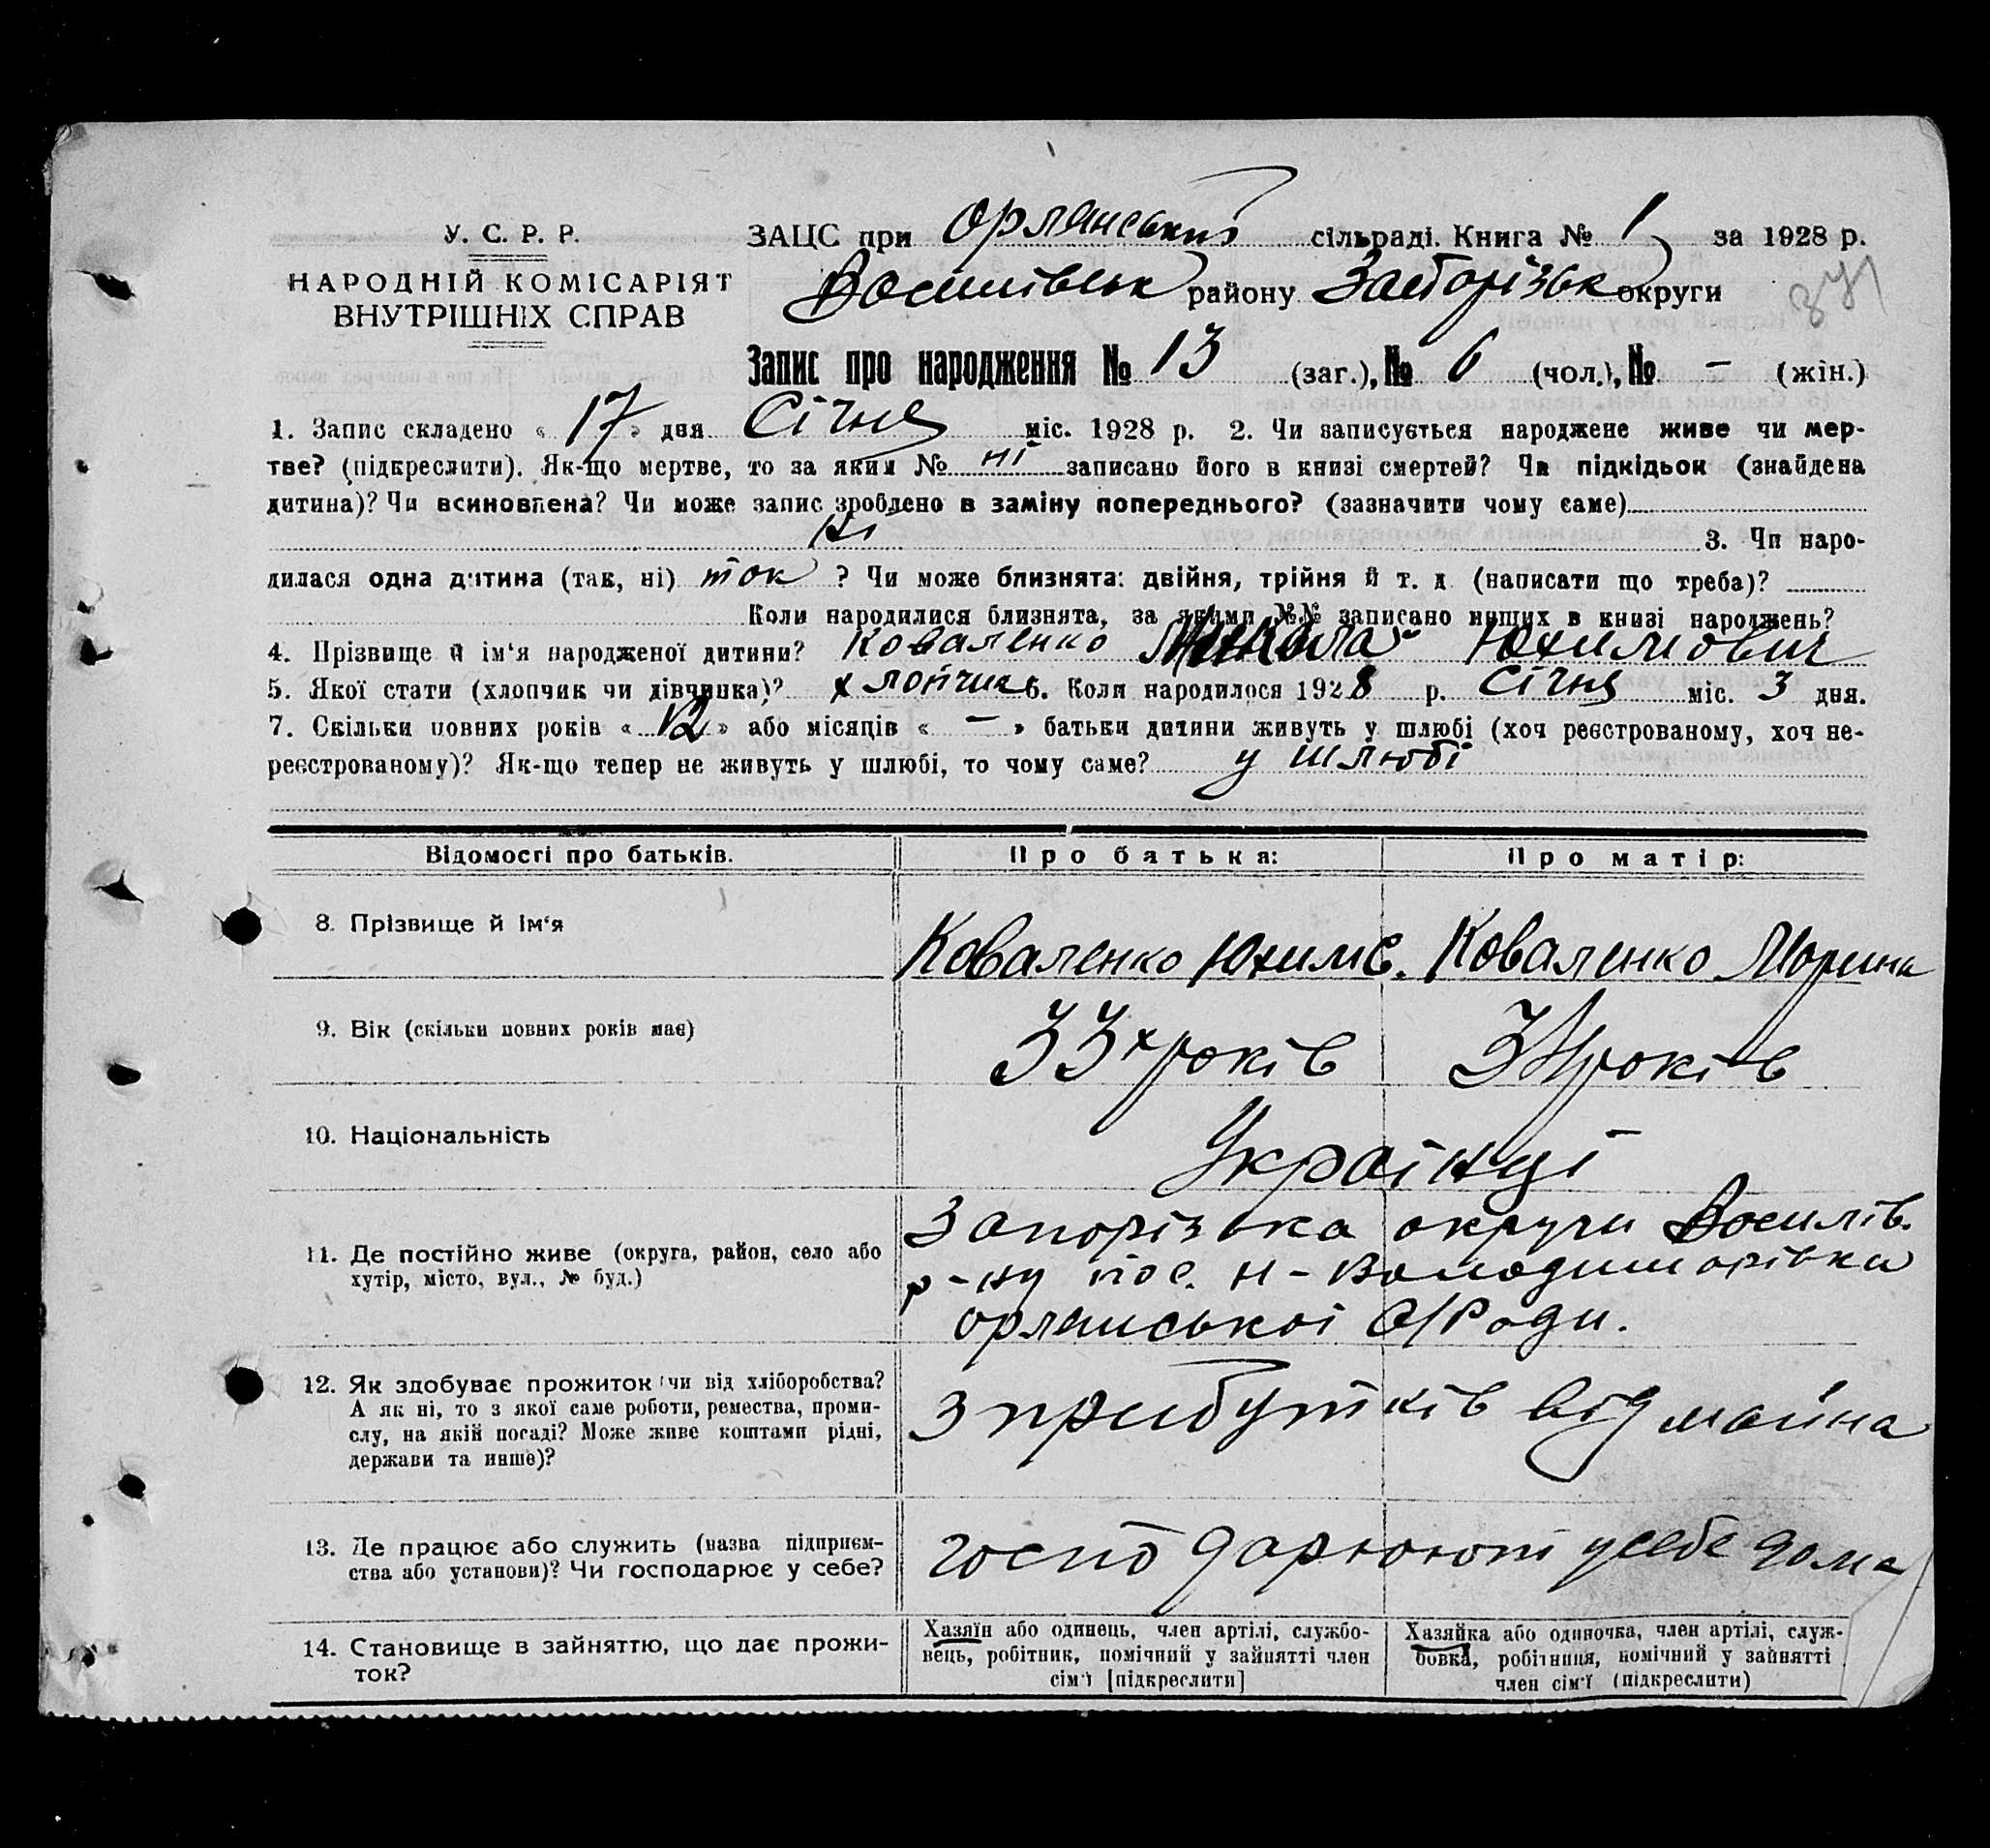 У. С. Р. Р.
НАРОДНІЙ КОМІСАРІЯТ
ВНУТРІШНІХ СПРАВ
ЗАЦС при Орлянській сільраді. Книга № 1 за 1928 р.
Василівськ району Запорізьк округи
Запис про народження № 13 (заг.), № 6 (чол.), № – (жін.)
1. Запис складено « 17 » дня Січня міс. 1928 р. 2. Чи записується народжене живе чи мер-
тве? (підкреслити). Як-що мертве, то за яким № ні записано його в книзі смертей? Чи підкідьок (знайдена
дитина)? Чи всиновлена? Чи може запис зроблено в заміну попереднього? (зазначити чому саме)
Ні 3. Чи наро-
дилася одна дитина (так, ні) так ? Чи може близнята: двійня, трійня й т. д (написати що треба)?
Коли народилися близнята, за якими №№ записано инших в книзі народжень?
4. Прізвище й ім'я народженої дитини? Коваленко Микола Юхимович
5. Якої стати (хлопчик чи дівчинка)? хлопчик 6. Коли народилося 1928 р. Січня міс. 3 дня.
7. Скільки повних років « 12 » або місяців « – » батьки дитини живуть у шлюбі (хоч реєстрованому, хоч не-
реєстрованому)? Як-що тепер не живуть у шлюбі, то чому саме? у шлюбі
Відомості про батьків. Про батька: Про матір:
8. Прізвище й ім'я Коваленко Юхим Є. Коваленко Марина
9. Вік (скільки повних років має) 33х років років
10. Національність Українці
11. Де постійно живе (округа, район, село або
хутір, місто, вул., № буд.)
Запорізька округи Василів.
р-ну пос. Н-Володимирівка
Орлянської С/Ради.
12. Як здобуває прожиток (чи від хліборобства?
А як ні, то з якої саме роботи, ремества, проми-
слу, на якій посаді? Може живе коштами рідні,
держави та инше)?
з прибутків від майна
13. Де працює або служить (назва підприєм-
ства або установи)? Чи господарює у себе?
господарюють у себе дома
14. Становище в зайняттю, що дає прожи-
ток?
Хазяїн або одинець, член артілі, службо-
вець, робітник, помічний у зайнятті член
сім'ї [підкреслити]
Хазяйка або одиночка, член артілі, служ-
бовка, робітниця, помічний у зайнятті
член сім'ї (підкреслити)